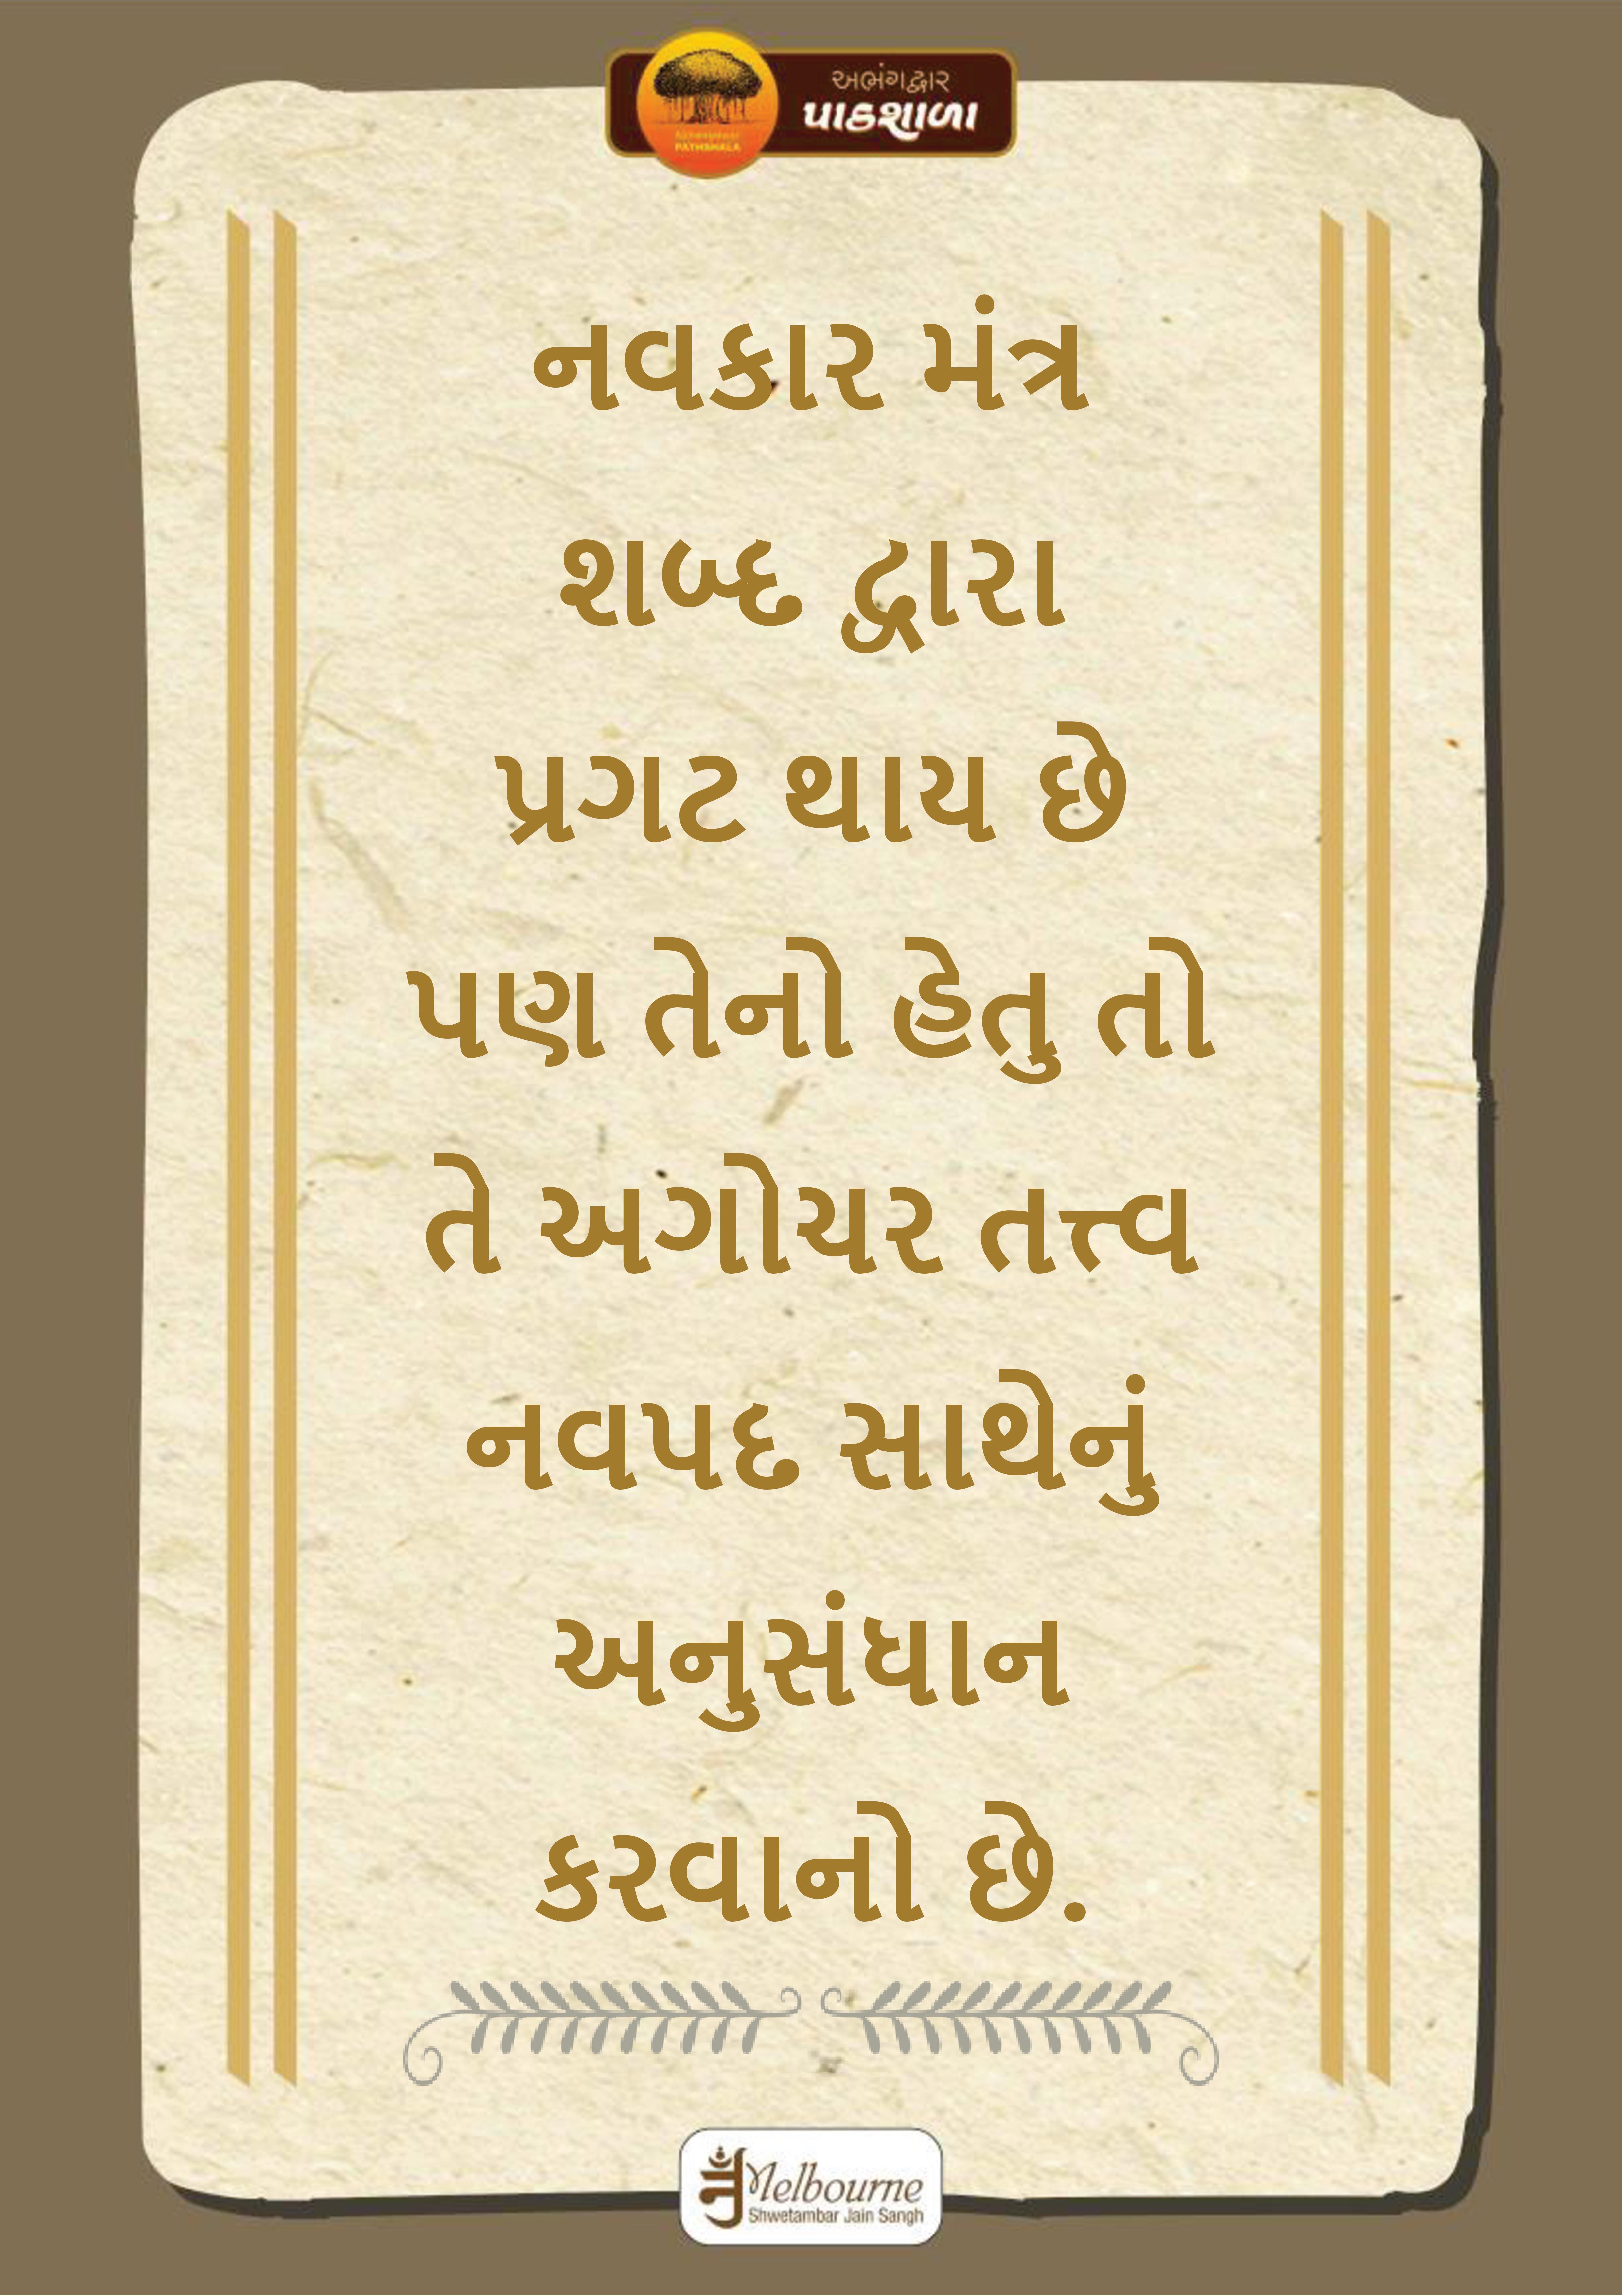 અભંગદ્વાર
પાઠશાળા
PATHSHALA
નવકાર મંત્ર
શબ્દ દ્વારા
પ્રગટ થાય છે
પણ તેનો હેતુ તો
તે અગોચર તત્ત્વ
નવપદ સાથેનું
અનુસંધાન
કરવાનો છે.
Melbourne
Shwetambar Jain Sangh